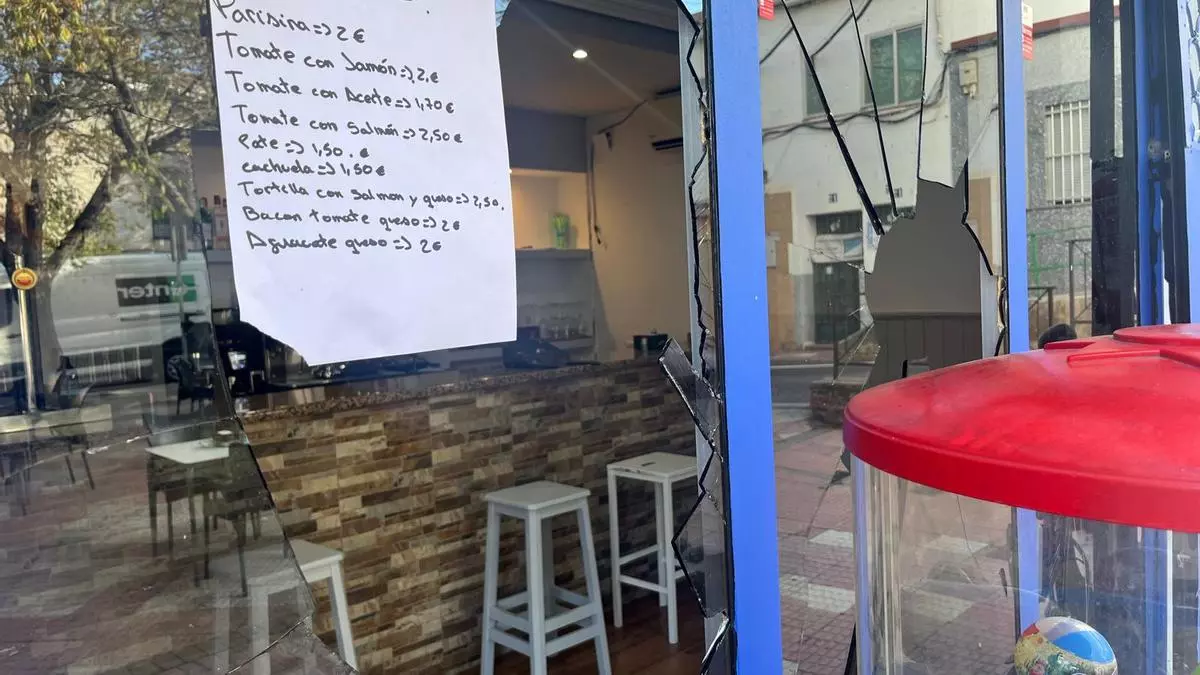 Parisina => 2€
Tomate con Jamón => 2€
Tomate con Aceite => 1,70€
Tomate con Salmón => 2,50€
Pate => 1,50.€
cachuela => 1,50€
Tortilla con Salmon y queso => 2,50.
Bacon tomate queso => 2€
Aguacate queso => 2€